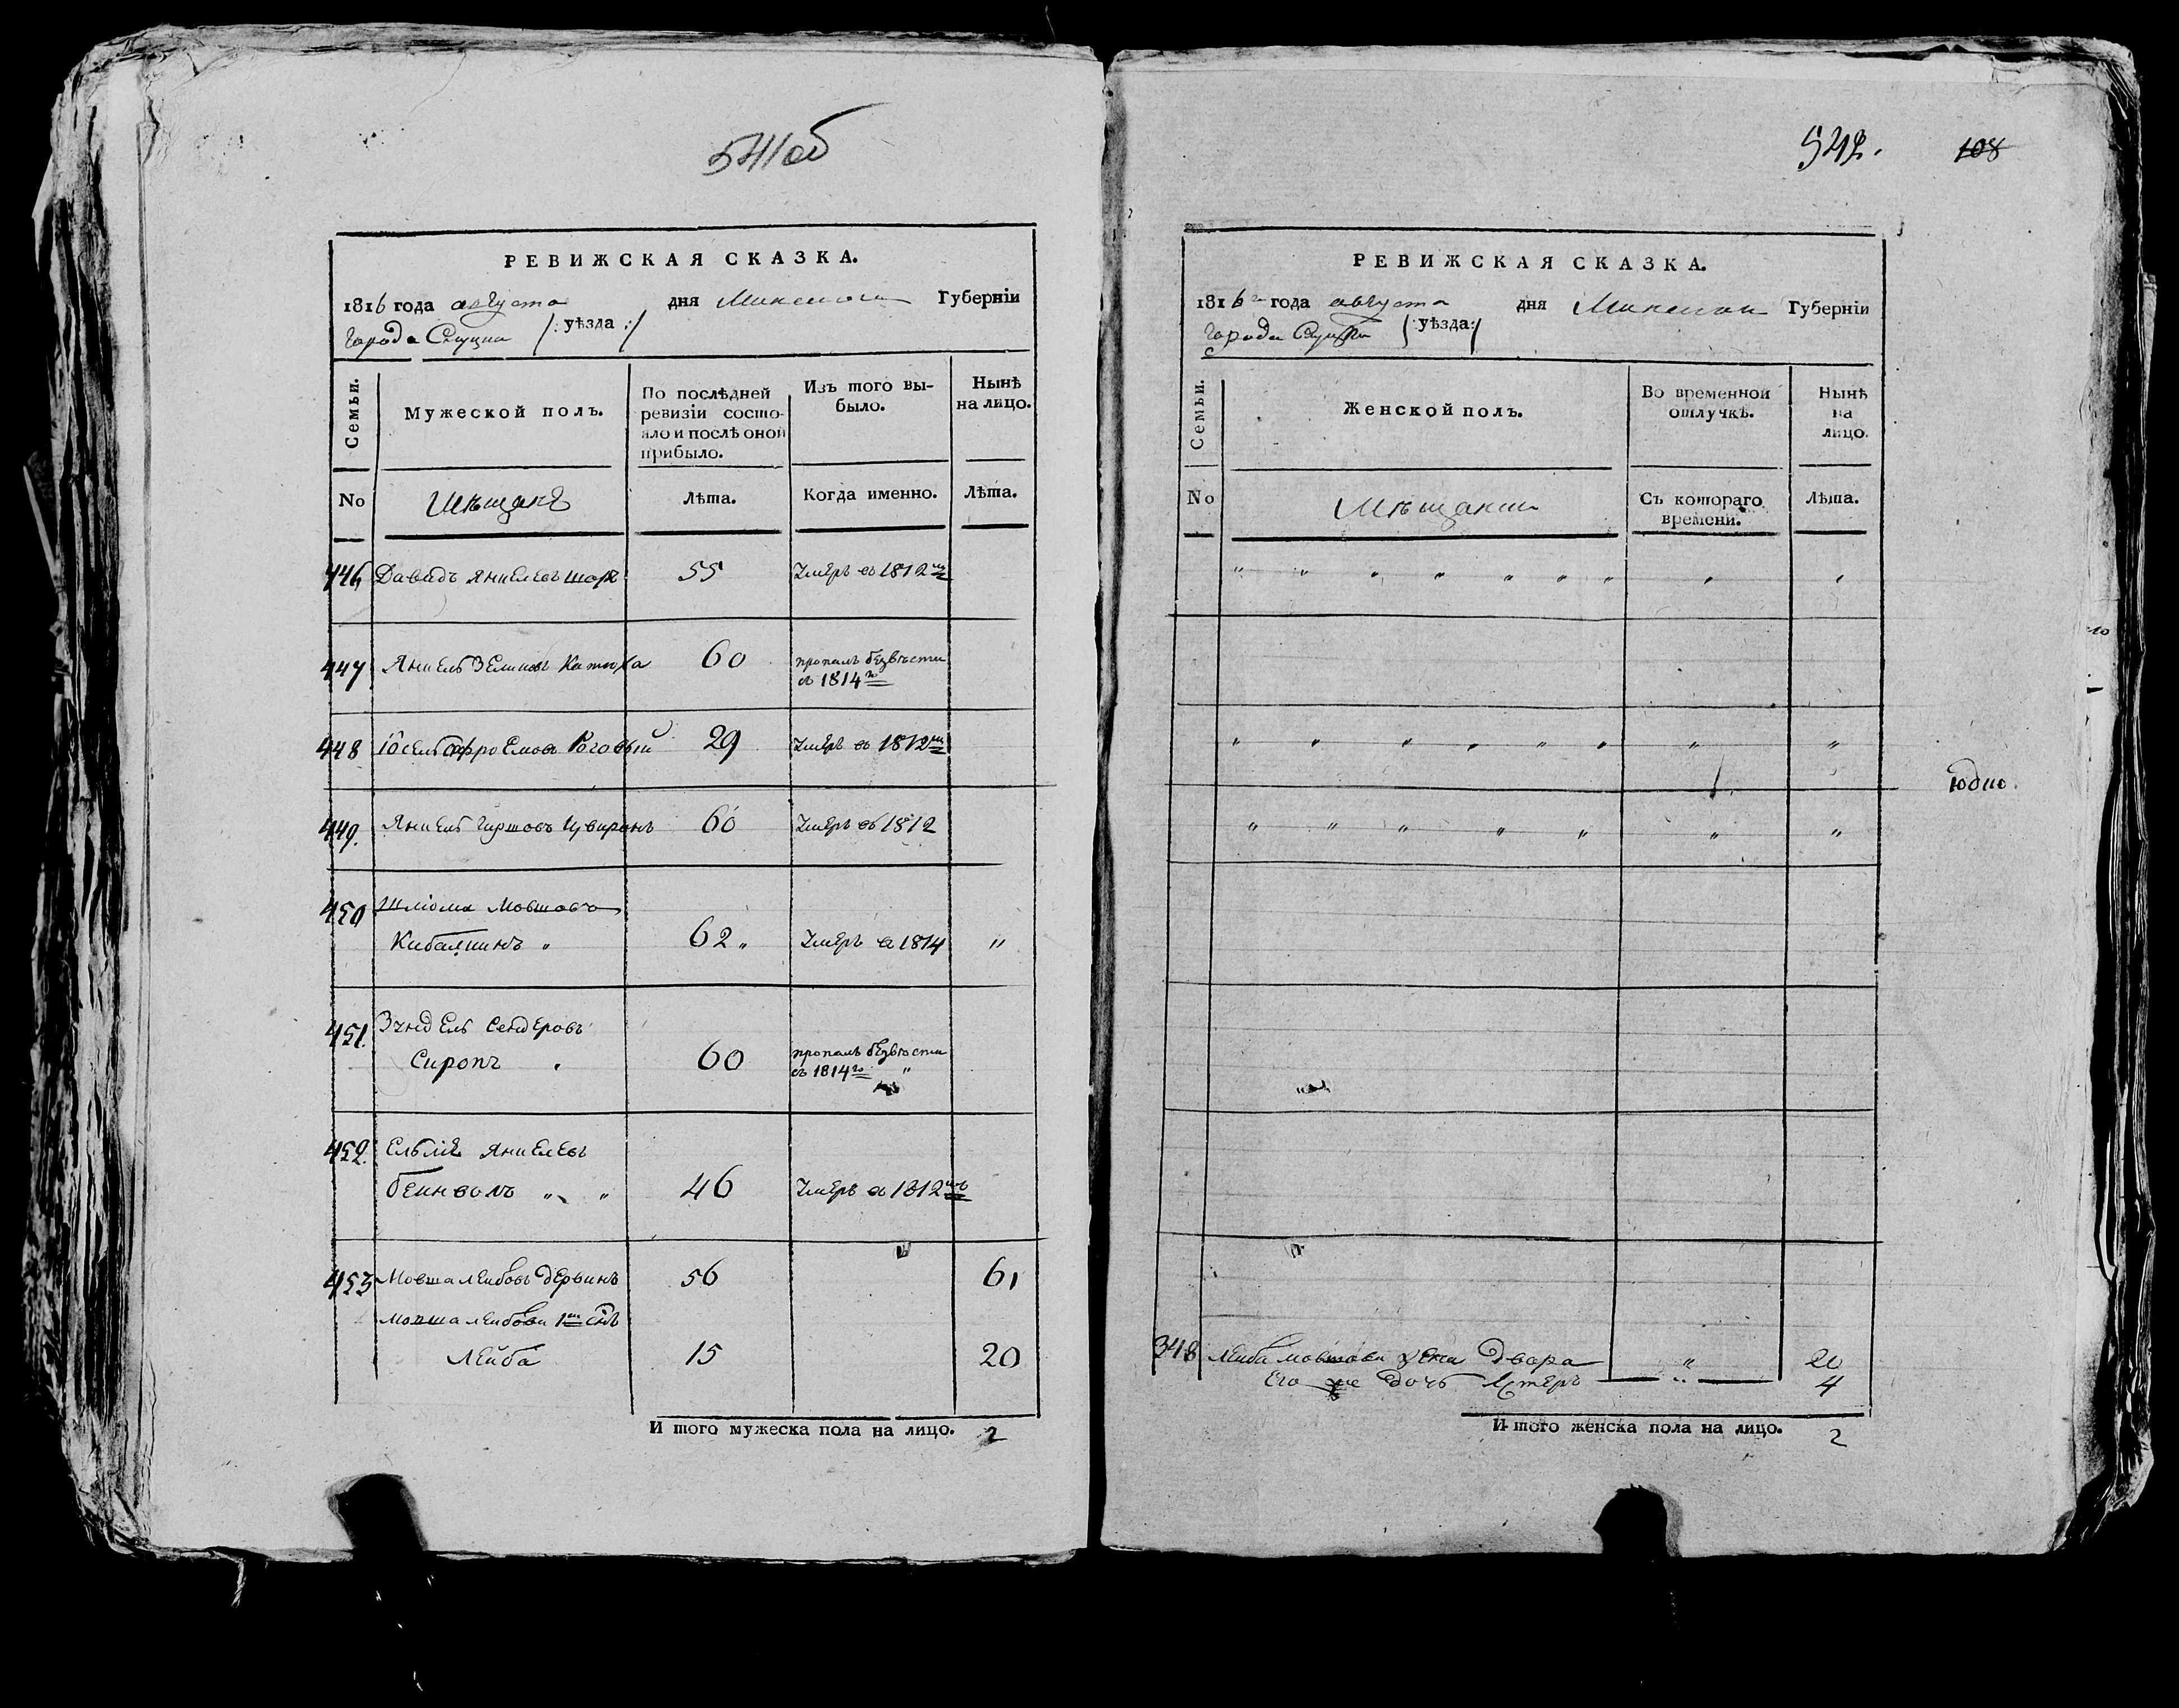 541об
РЕВИЖСКАЯ СКАЗКА.
1816 года августа дня Минской Губерніи
города Слуцка /: уѣзда :/
Семьи.
Мужеской полъ.
По послѣдней ревизіи состояло и послѣ оной прибыло.
Изъ того выбыло.
Нынѣ на лицо.
No
Мѣщанѣ
Лѣта.
Когда именно.
Лѣта.
446 Давидъ Янкелевъ 55 Умеръ въ 1812
447 Янкель Зеликовъ 60 пропалъ безвѣсти
въ 1814го
448 Іосель Роговый 29 Умеръ въ 1812
449. Янкель Гиршовъ 60 Умеръ въ 1812
450 Шліома Мовшовъ
62 „ Умеръ въ 1814 „
451. Зундель Сендеровъ
Сиропъ 60 пропалъ безвѣсти
въ 1814го „
452. Янкелевъ
46 Умеръ въ 1812
453 Мовша Лейбовъ Дервинъ 56 61
Мовша Лейбова 1й Сынъ
Лейба 15 20
И того мужеска пола на лицо. 2
542. 108
РЕВИЖСКАЯ СКАЗКА.
1816 года августа дня Минской Губерніи
города Слуцка /: уѣзда :/
Семьи.
Женской полъ.
Во временной отлучкѣ.
Нынѣ на лицо.
No
Мѣщанки
Съ котораго времени.
Лѣта.
348 Лейба Мовшова жена Двора „ 20
Его же дочь Эстеръ „ 4
И того женска пола на лицо. 2